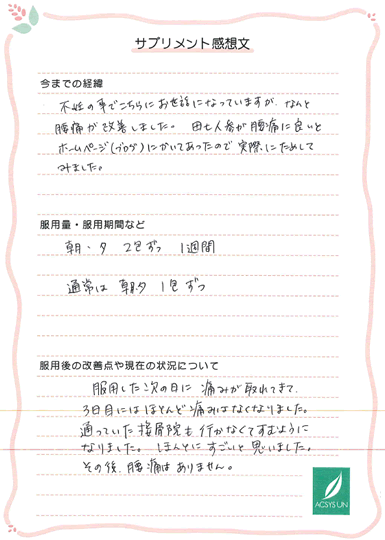 サプリメント感想文
今までの経緯
不妊の事でこちらにお世話になっていますが、なんと
腰痛が改善しました。 田七人参が腰痛に良いと
ホームページ(ブログ)にかいてあったので実際にためして
みました。
服用量・服用期間など
朝・夕 2包ずつ 1週間
通常は 朝夕 1包ずつ
服用後の改善点や現在の状況について
服用した次の日に 痛みが取れてきて、
3日目にはほとんど痛みはなくなりました。
通っていた接骨院も行かなくてすむように
なりました。 ほんとにすごいと思いました。
その後、腰痛はありません。
ACSYS UN